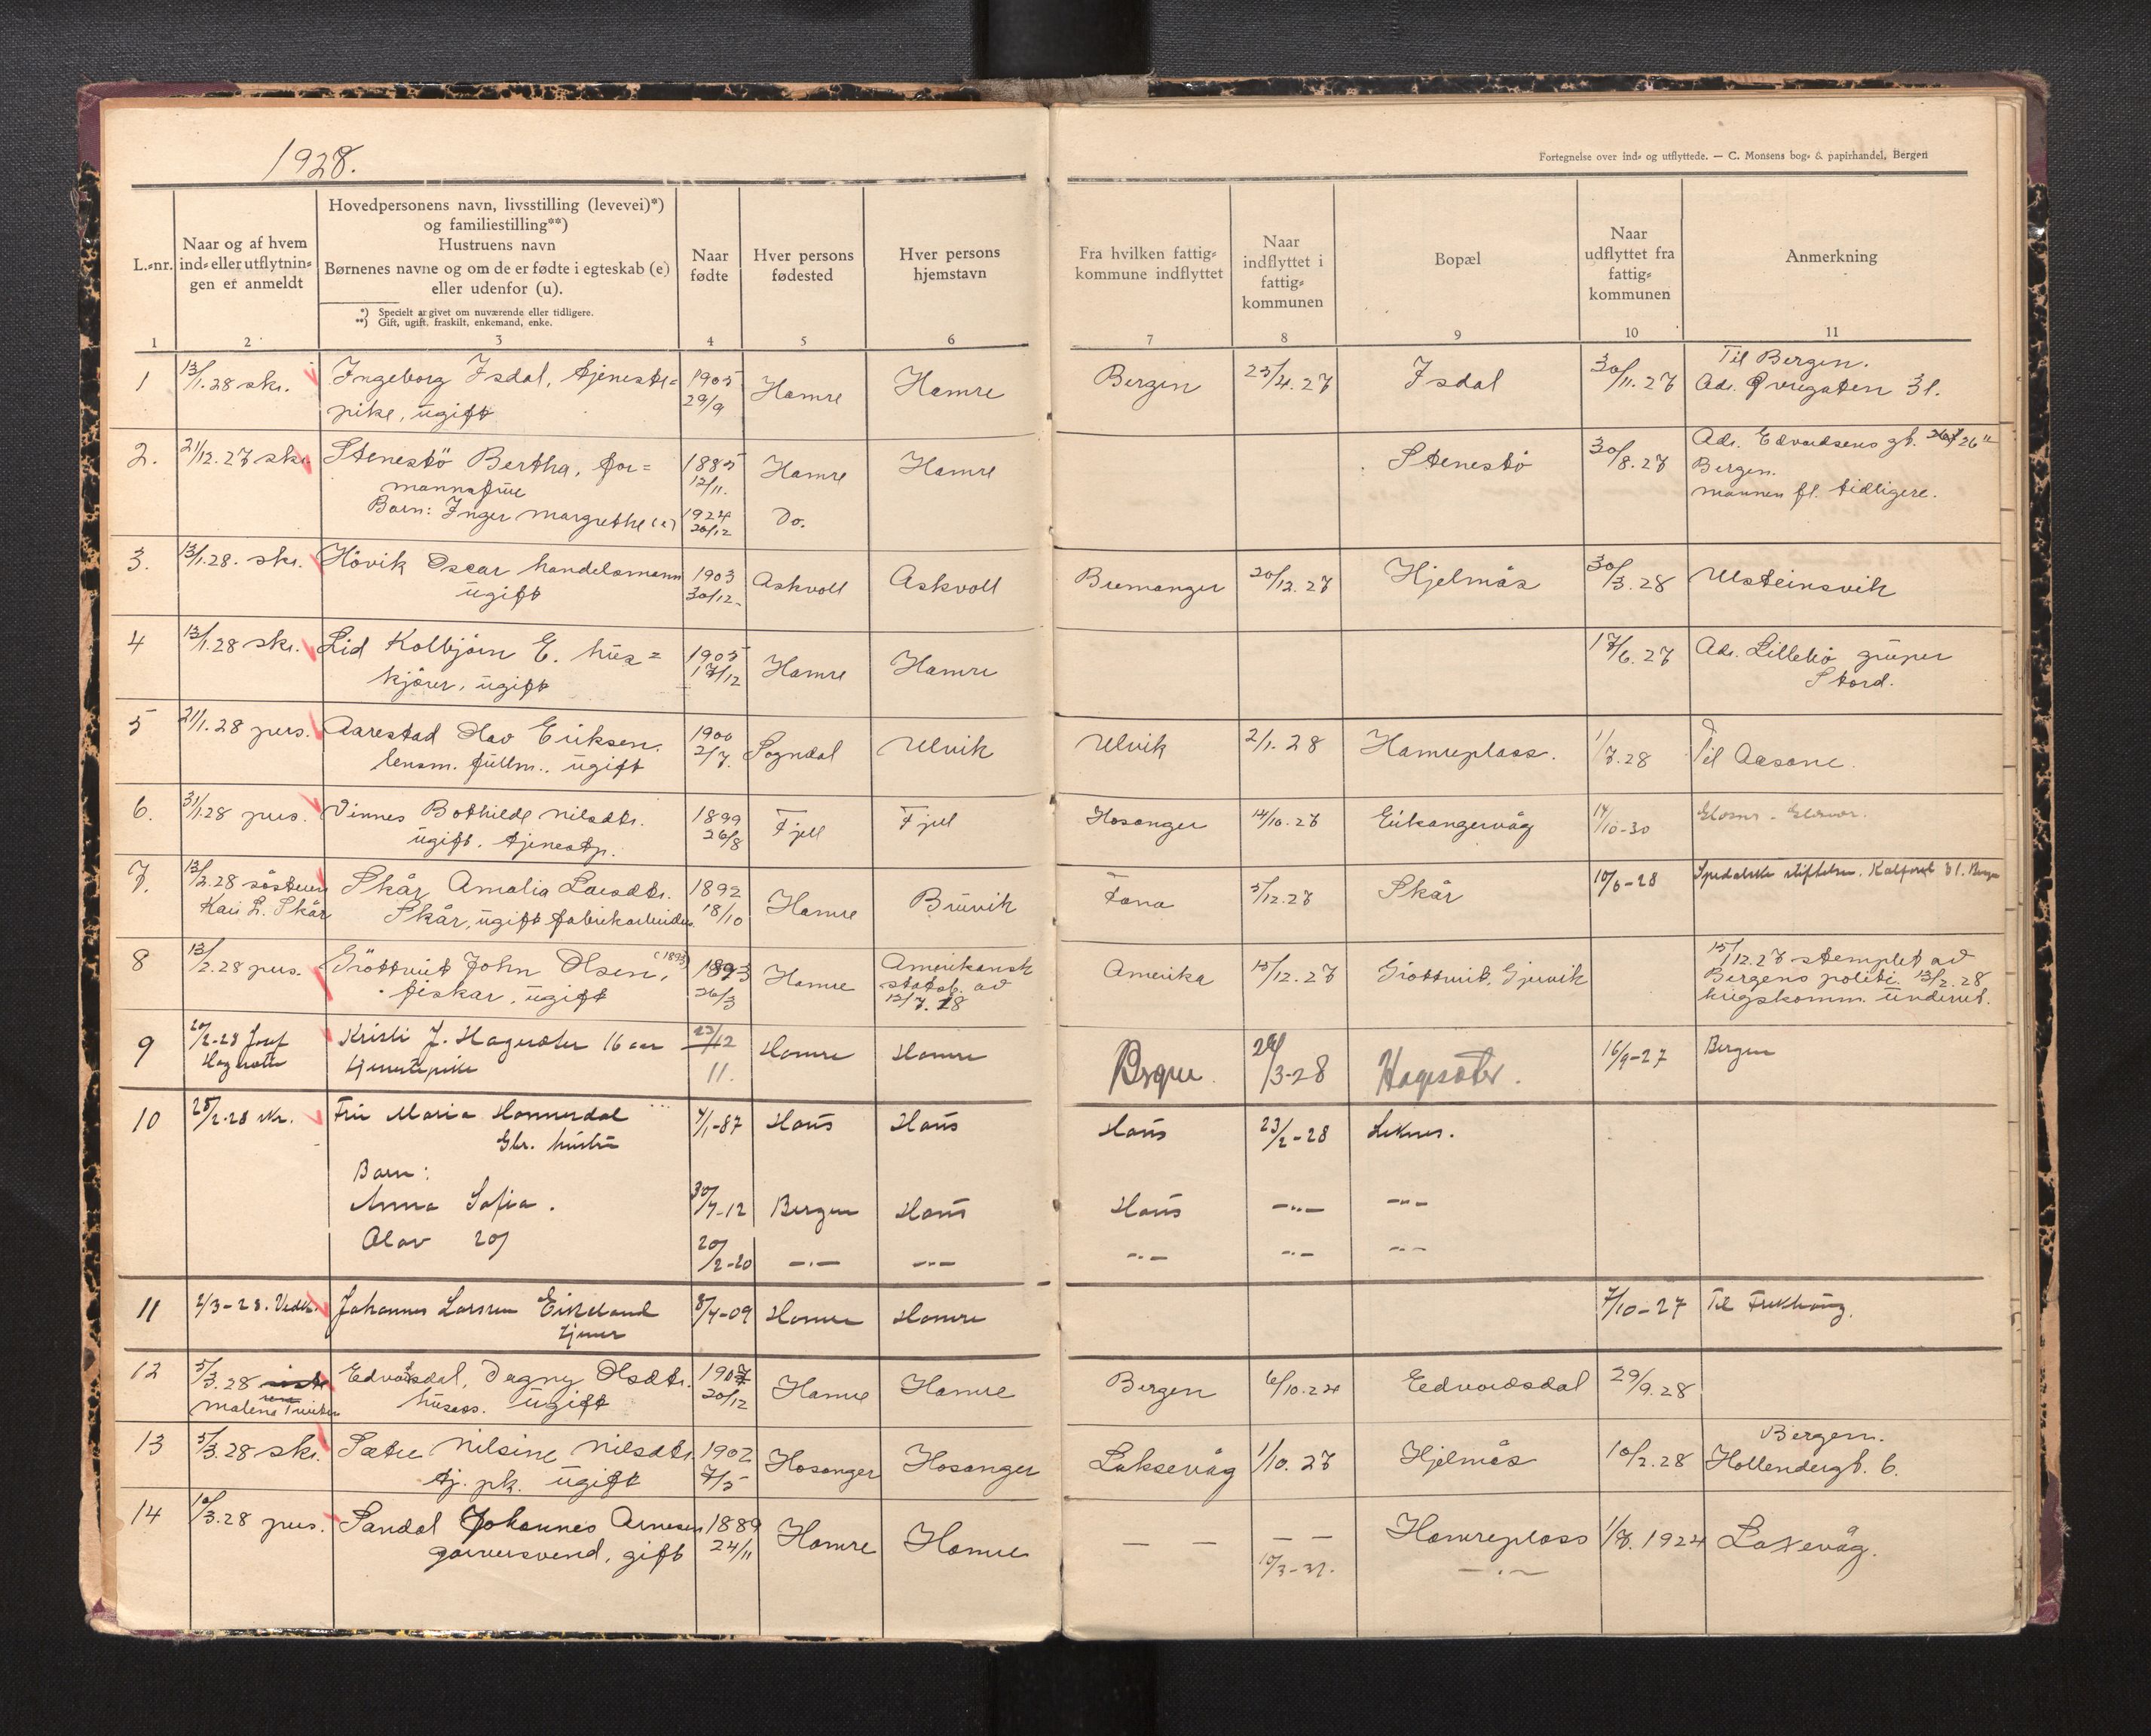 1928.
Fortegnelse over ind- og utflyttede. — C. Monsens bog- & papirhandel, Bergen
L.-nr.
Naar og af hvem
ind- eller utflytnin-
gen er anmeldt
Hovedpersonens navn, livsstilling (levevei)*)
og familiestilling**)
Hustruens navn
Børnenes navne og om de er fødte i egteskab (e)
eller udenfor (u).
*) Specielt argivet om nuværende eller tidligere.
**) Gift, ugift, fraskilt, enkemand, enke.
Naar
fødte
Hver persons
fødested
Hver persons
hjemstavn
Fra hvilken fattig-
kommune indflyttet
Naar
indflyttet i
fattig-
kommunen
Bopæl
Naar
udflyttet fra
fattig-
kommunen
Anmerkning
1 2 3 4 5 6 7 8 9 10 11
1 13/1.28 skr. Ingeborg Isdal, tjeneste= 1905 Hamre Hamre Bergen 25/4.27 Isdal 30/11.27 Til Bergen.
pike, ugift 29/9 Ad. Øvregaten 31.
2. 21/12.27 skr. Stenestö Bertha, for= 1885 Hamre Hamre Stenestö 30/8.27 Adr. Edvardsens gt. 26"
mannsfrue 12/11. Bergen.
Barn: Inger Margrethe (e) 1924 Do. mannen fl. tidligere.
20/12
3. 13/1.28. skr. Hövik Oscar handelsmann 1903 Askvoll Askvoll Bremanger 20/12.27 Hjelmås 30/3.28 Ulsteinsvik
ugift 30/12.
4 13/1.28 skr. Lid Kolbjörn E. hus= 1905 Hamre Hamre 17/6.27 Adr. Lillebö gruper
kjörer, ugift 17/12 Stord.
5 21/1.28 pers. Aarestad Olav Eriksen. 1900 Sogndal Ulvik Ulvik 2/1.28 Hamreplass. 1/7.28 Til Aasane.
lensm. fullm., ugift 2/7.
6. 31/1.28 pers. Vinnes Bothilde Nilsdtr. 1899 Fjell Fjell Hosanger 14/10.27 Eikangervåg 14/10-30
ugift. tjenestp. 26/8
7. 13/2.28 sösteren Skår Amalia Larsdtr. 1892 Hamre Bruvik Fana 5/12.27 Skår 10/6-28 Spedalske stiftelse. Kalfaret 31. Bergen
Kari L. Skår Skår, ugift fabrikarbeider 18/10
8 13/2.28 pers. Gröttveit John Olsen, (1893) 1893 Hamre Amerikansk Amerika 15/12.27 Gröttveit, Gjervik 15/12.27 stemplet av
fiskar, ugift 26/3 statsb. av Bergens politi. 13/2.28
13/7.18 krigskomm. underret.
9 20/2-28 Josef Kristi J. Hagesæter 16 aar 23/12 Hamre Hamre Bergen. 24/3-28 Hagesæter. 16/9-27 Bergen
Hagesæter tjenestepike 11.
10 25/2-28 skr. Fru Maria 4/1-87 Haus Haus Haus 23/2-28 Leknes.
Gbr. hustru
Barn:
Anna Sofia. 30/7-12 Bergen Haus Haus —"— —"—
Olav 20/2-20 —"— —"— —"— —"— —"—
11 2/3-28. Johannes Larsen Eikeland 8/4-09 Hamre Hamre 7/10-27 Til Frekhaug.
tjener
12 5/3.28 Edvardsdal, Dagny Olsdtr. 1907 Hamre Hamre Bergen 6/10.24 Eedvardsdal 29/9.28
Malene husass. ugift 20/12
13 5/3.28 skr. Sætre Nilsine Nilsdtr. 1902 Hosanger Hosanger Laksevåg 1/10.27 Hjelmås 10/2.28 Bergen.
tj. pk. ugift 7/5 Hollendergt. 6.
14 10/3.28 pers. Sandal Johannes Arnesen 1889 Hamre Hamre — — — — Hamreplass 1/8.1924 Laxevåg.
garversvend, gift 24/11 10/3-31. —"—